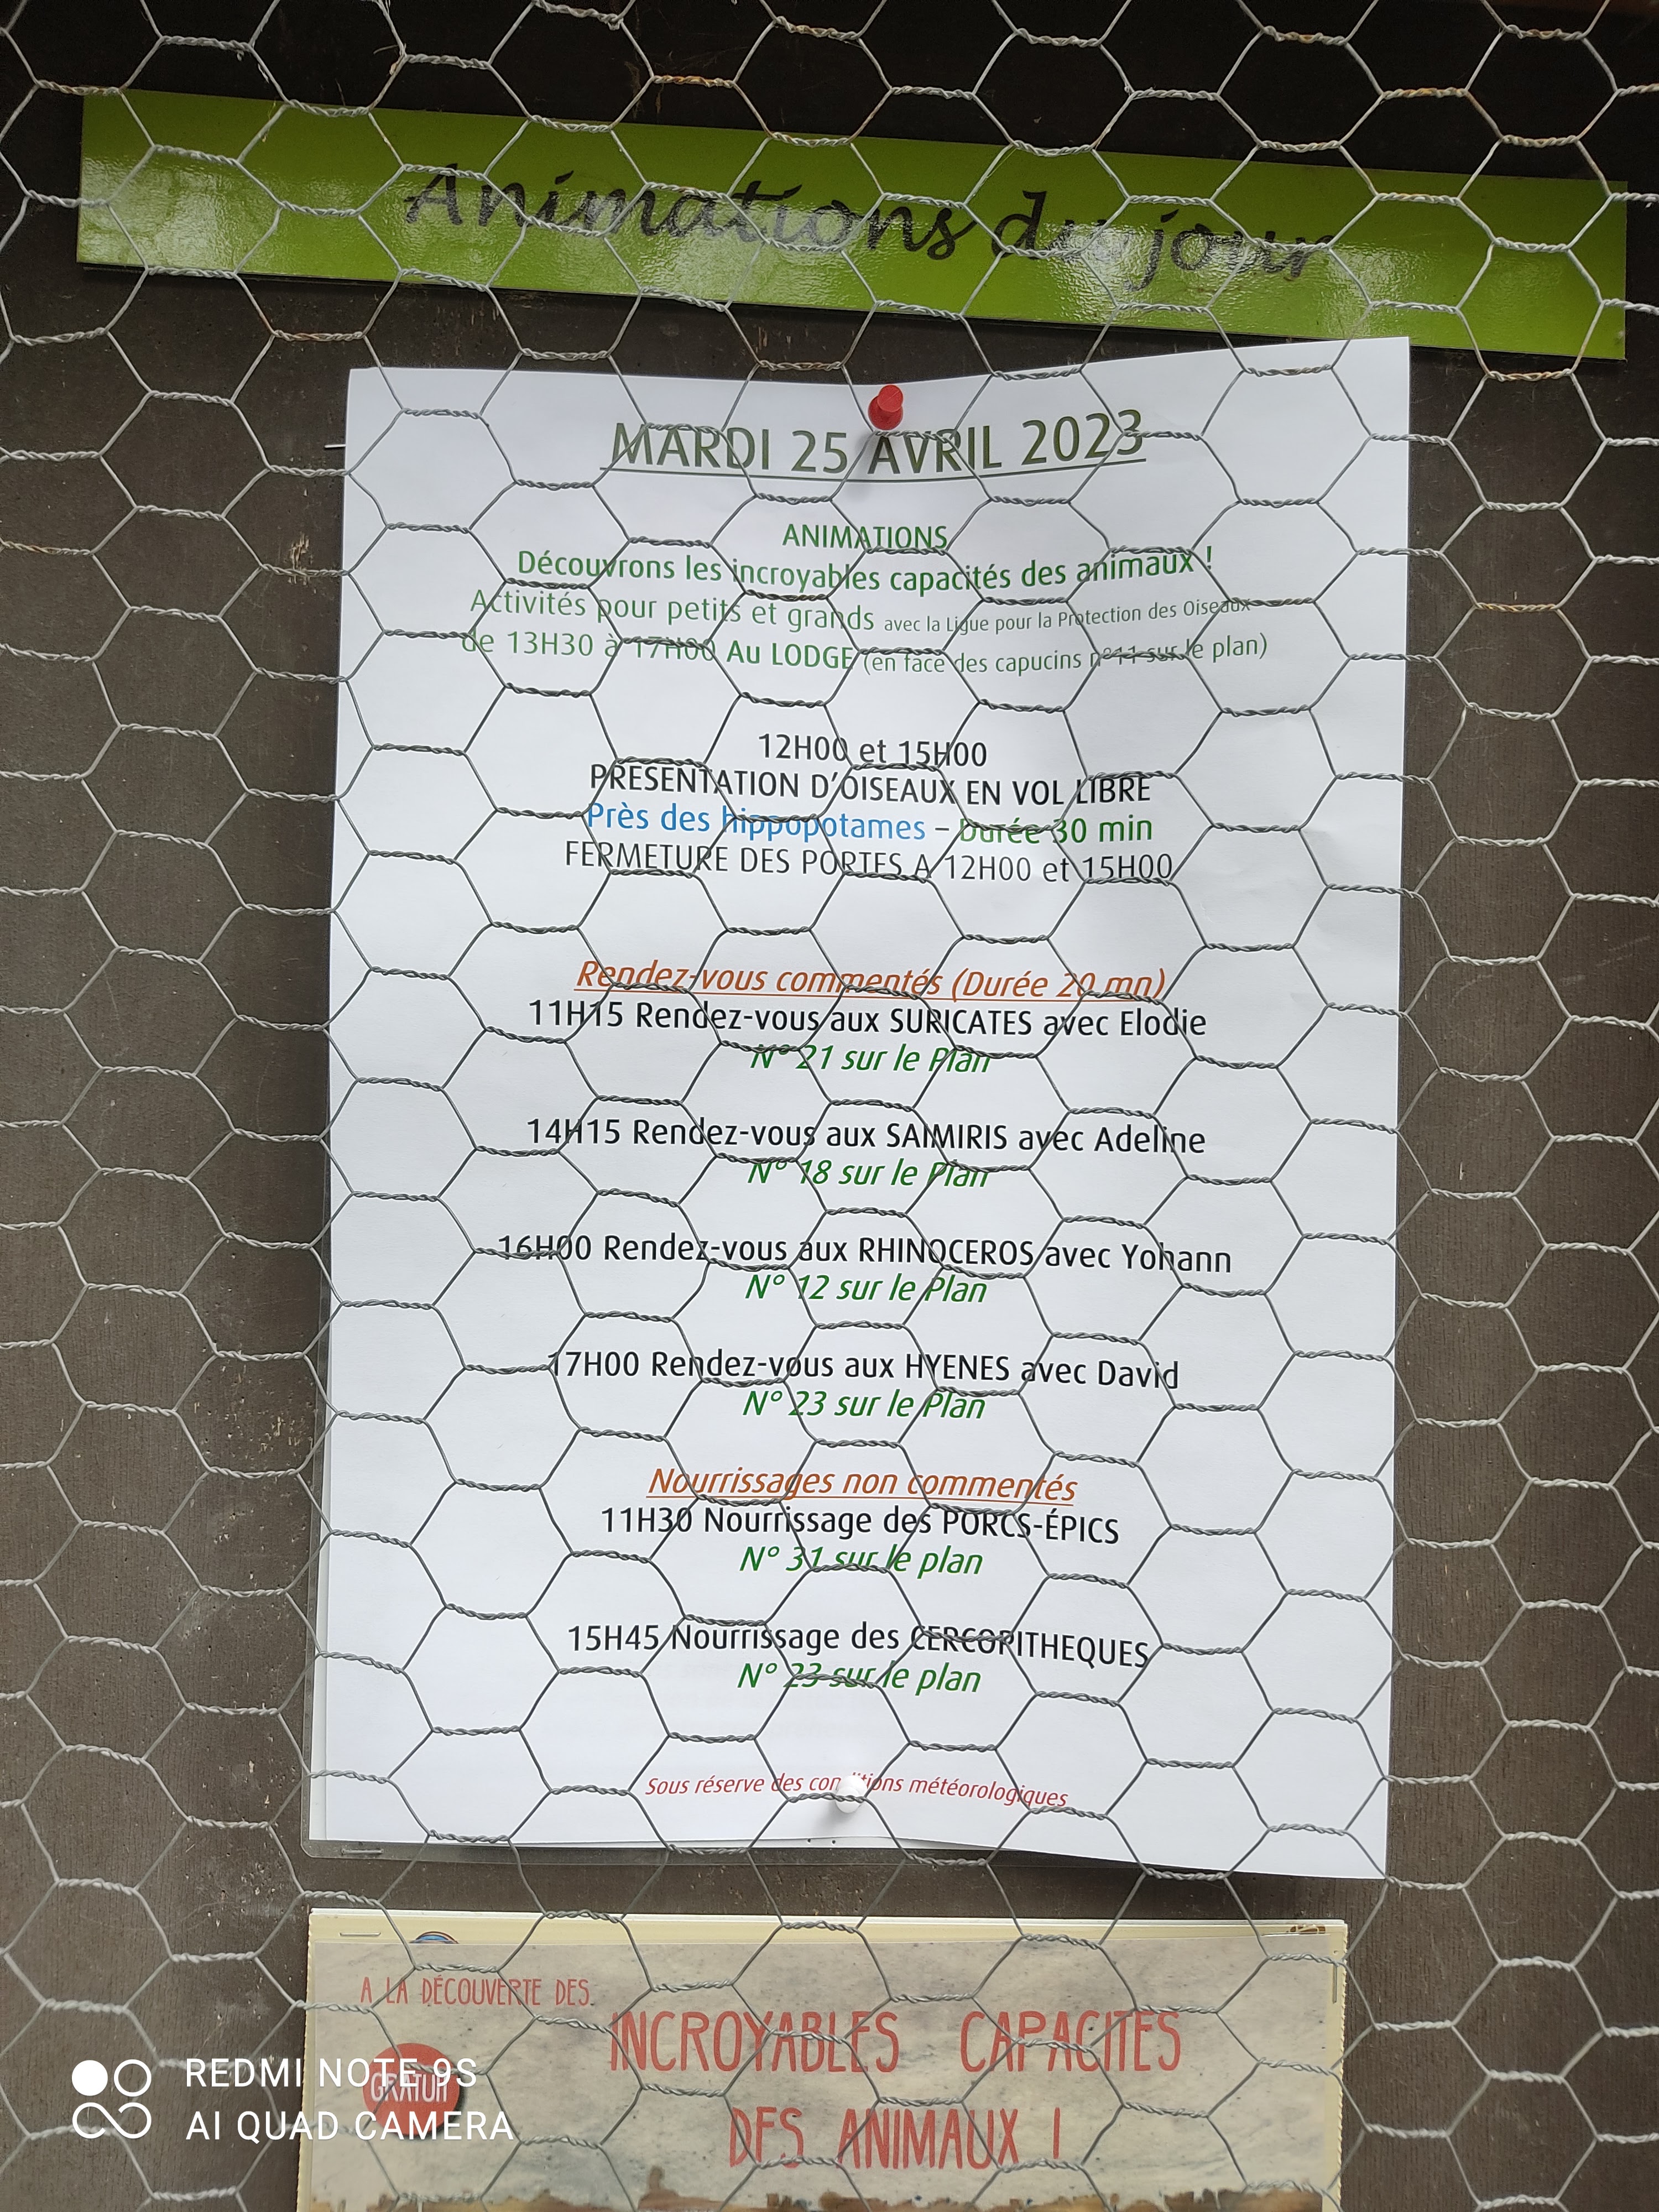 Animations du jour
MARDI 25 AVRIL 2023
ANIMATIONS
Découvrons les incroyables capacités des animaux !
Activités pour petits et grands avec la Ligue pour la Protection des Oiseaux
de 13H30 à 17H00 Au LODGE (en face des capucins n°11 sur le plan)
12H00 et 15H00
PRESENTATION D'OISEAUX EN VOL LIBRE
Près des hippopotames – Durée 30 min
FERMETURE DES PORTES A 12H00 et 15H00
Rendez-vous commentés (Durée 20 mn)
11H15 Rendez-vous aux SURICATES avec Elodie
N° 21 sur le Plan
14H15 Rendez-vous aux SAIMIRIS avec Adeline
N° 18 sur le Plan
16H00 Rendez-vous aux RHINOCEROS avec Yohann
N° 12 sur le Plan
17H00 Rendez-vous aux HYENES avec David
N° 23 sur le Plan
Nourrissages non commentés
11H30 Nourrissage des PORCS-ÉPICS
N° 31 sur le plan
15H45 Nourrissage des CERCOPITHEQUES
N° 23 sur le plan
Sous réserve des conditions météorologiques
A LA DÉCOUVERTE DES
INCROYABLES CAPACITES
DES ANIMAUX !
GRATUIT
REDMI NOTE 9S
AI QUAD CAMERA